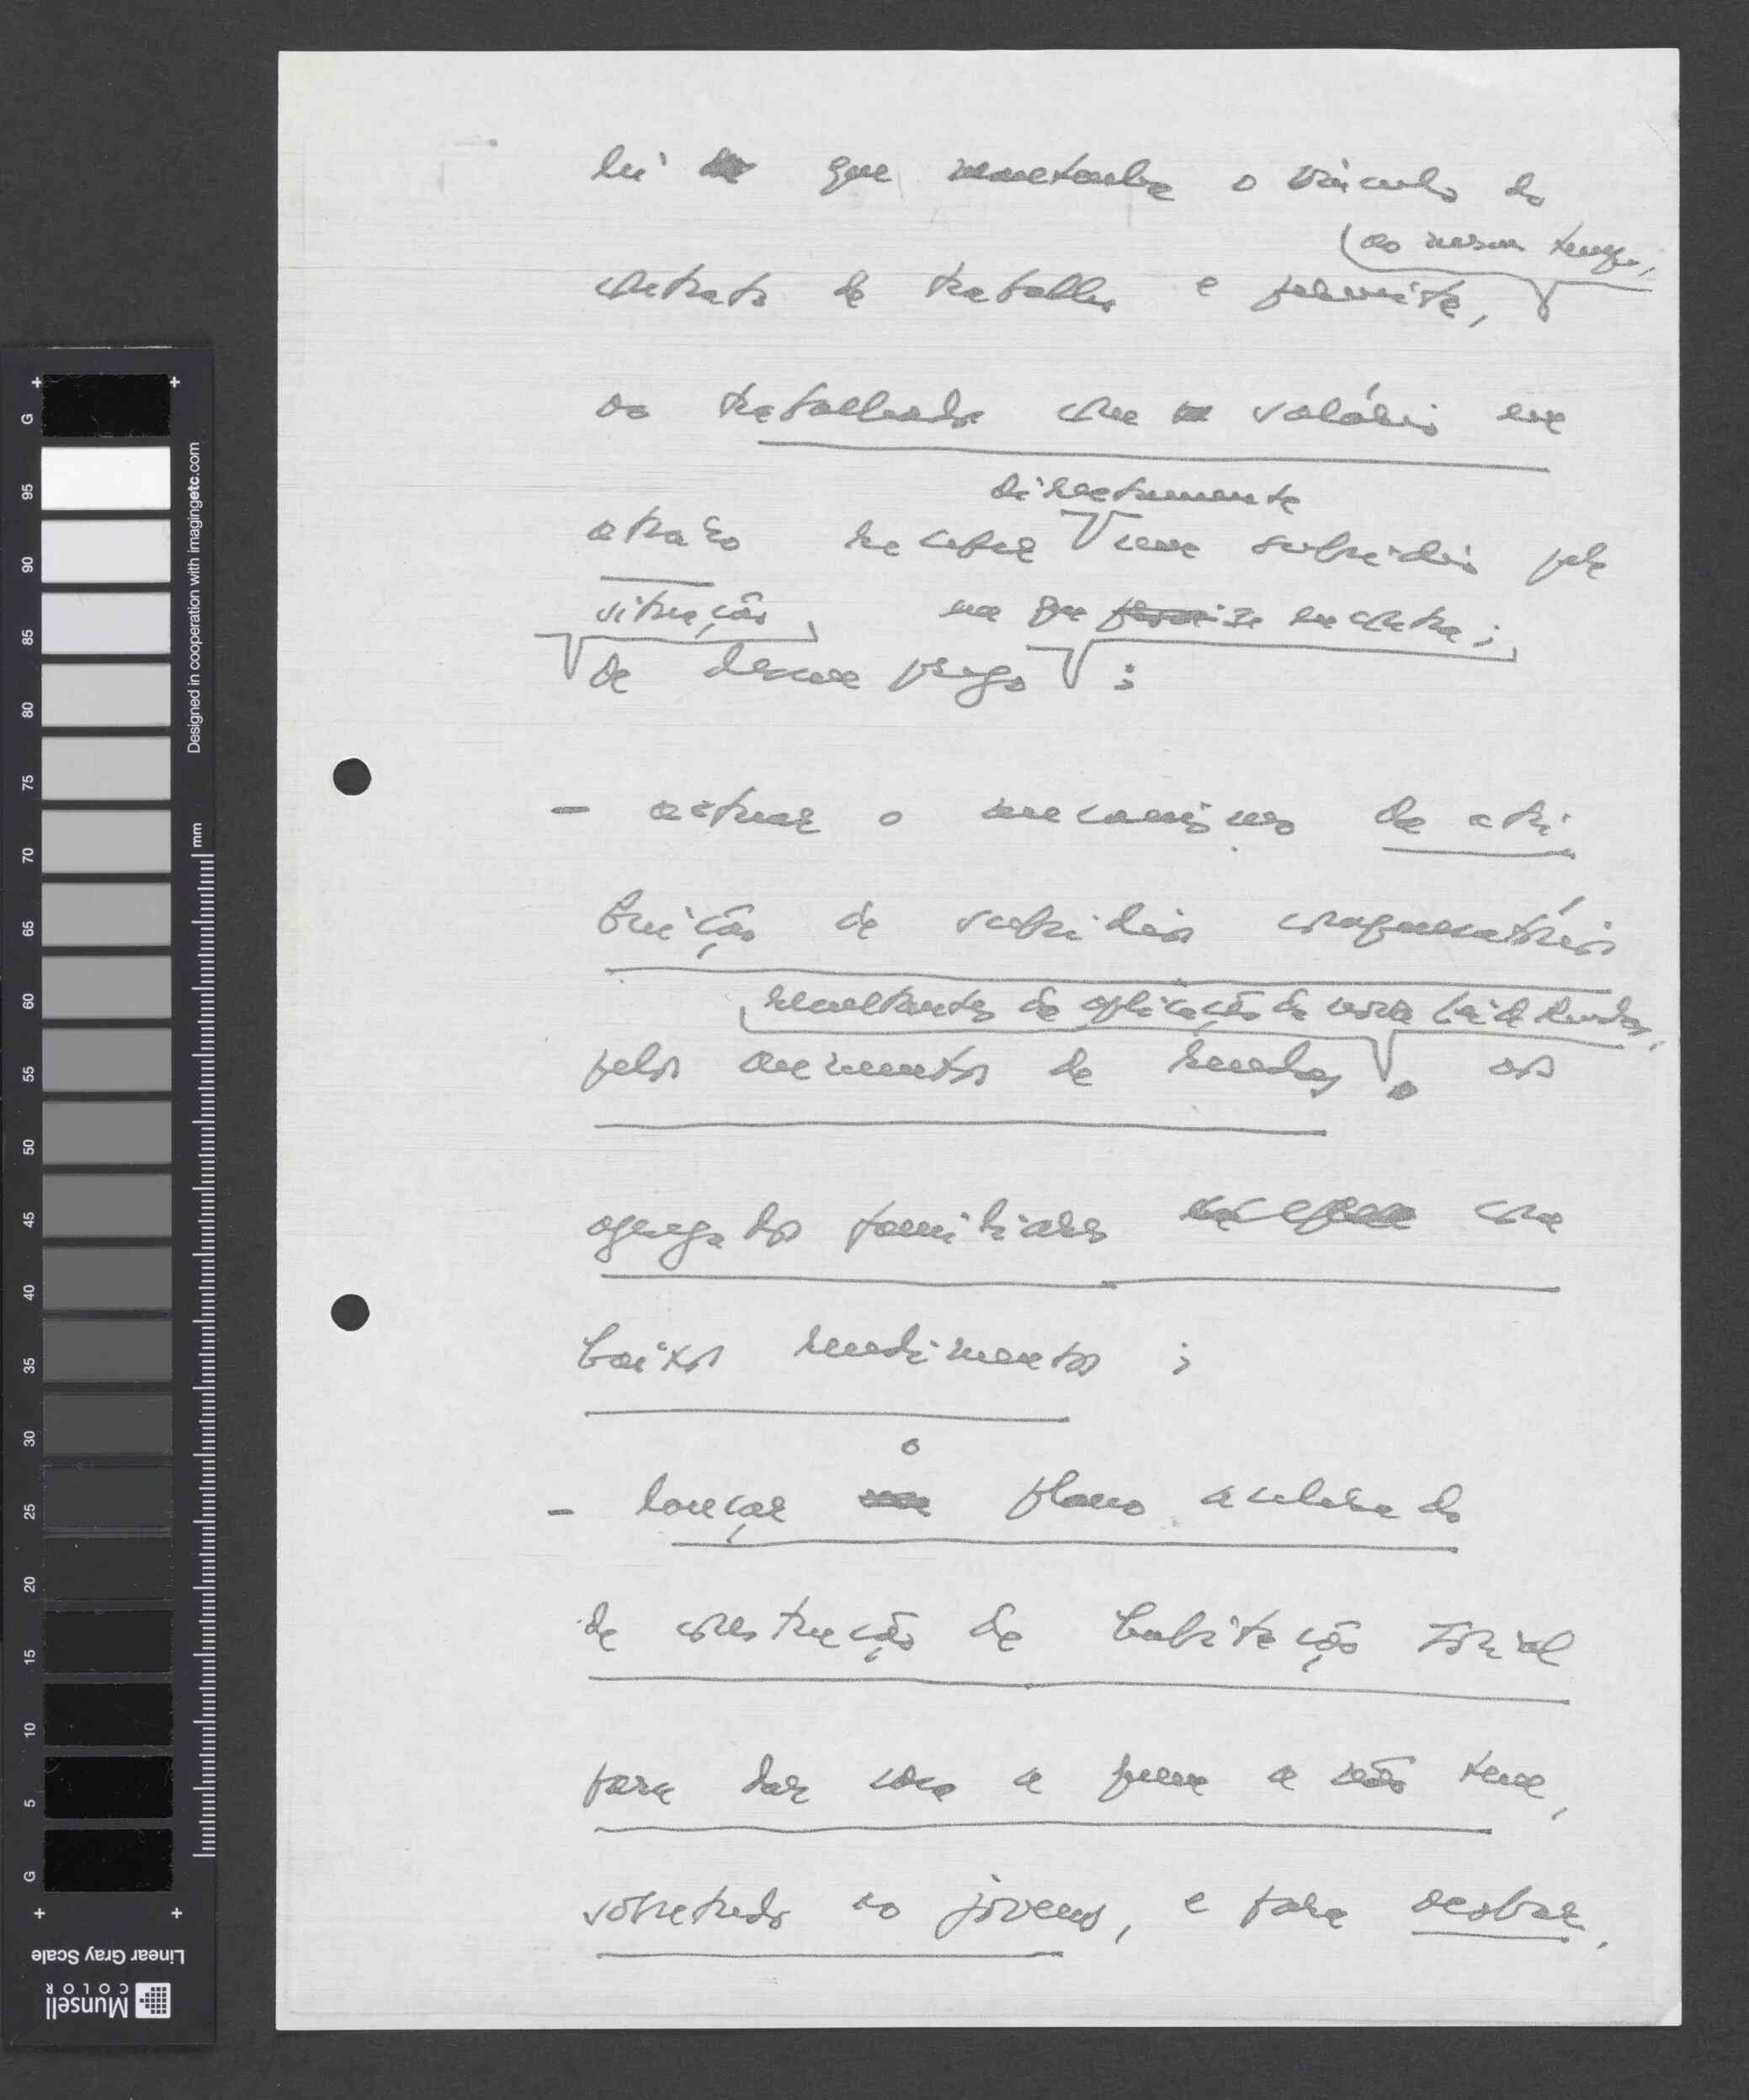 lei que mantenha o vínculo do
(ao mesmo tempo,
contrato de trabalho e permite,
ao trabalhador com salário em
directamente
atrazo receber uma subsídio pela
situação, na que se encontra;
de desemprego;
- actuar o mecanismo de atri
buição de subsídios compensatórios
resultantes da aplicação da nova lei de rendas,
pelos aumentos de rendas, aos
agregados familiares com
baixos rendimentos;
o
- lançar plano acelerado
de construção de habitação social
para dar casa a quem a não tem,
sobretudo ao jovens, e para acabar,
Designed in cooperation with imagingetc.com
mm
G 95 90 85 80 75 70 65 60 55 50 45 40 35 30 25 20 15 10 5 G
Linear Gray Scale
Munsell
COLOR